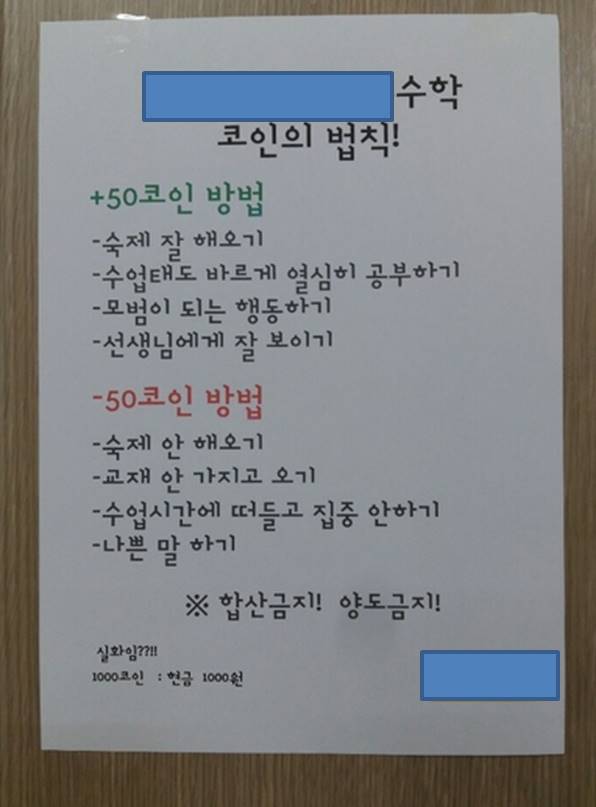 수학
코인의 법칙!
+50코인 방법
-숙제 잘 해오기
-수업태도 바르게 열심히 공부하기
-모범이 되는 행동하기
-선생님에게 잘 보이기
-50코인 방법
-숙제 안 해오기
-교재 안 가지고 오기
-수업시간에 떠들고 집중 안하기
-나쁜 말 하기
※ 합산금지! 양도금지!
실화임??!!
1000코인 : 현금 1000원